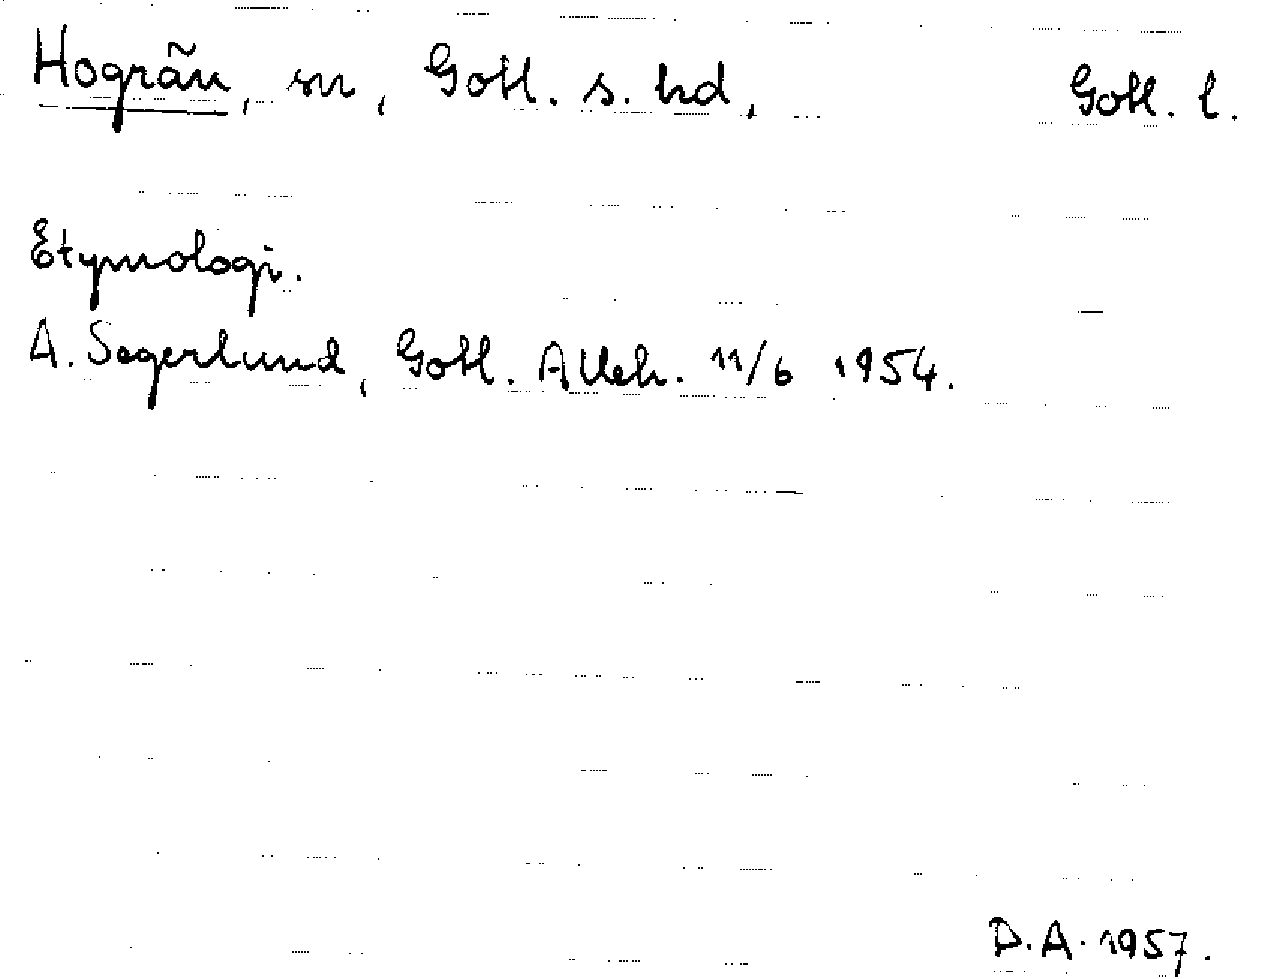 Hogrän, sn, Gotl. s. hd, Gotl. l.
Etymologi.
A. Segerlund, Gotl. Alleh. 11/6 1954.
D.A. 1957.